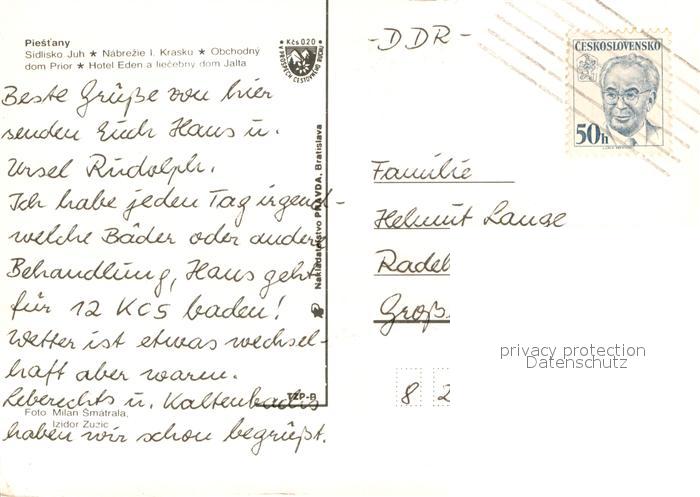 Piešťany
Sídlisko Juh ★ Nábrežie I. Krasku ★ Obchodný
dom Prior ★ Hotel Eden a liečebný dom Jalta
★ Kčs 0,20 ★
V PROSPECH CESTOVNÉHO RUCHU
Beste Grüße von hier
senden Euch Hans u.
Ursel Rudolph.
Ich habe jeden Tag irgend-
welche Bäder oder andere
Behandlung, Hans geht
für 12 KCS baden!
Wetter ist etwas wechsel-
haft aber warm.
Leberechts u. Kaltenbachs
haben wir schon begrüßt.
Foto Milan Šmátrala,
Izidor Zuzic
TŽP-B
Nakladateľstvo PRAVDA, Bratislava
-DDR-
ČESKOSLOVENSKO
50h
Familie
Helmut Lange
Radeb
Groß
8 2
privacy protection
Datenschutz